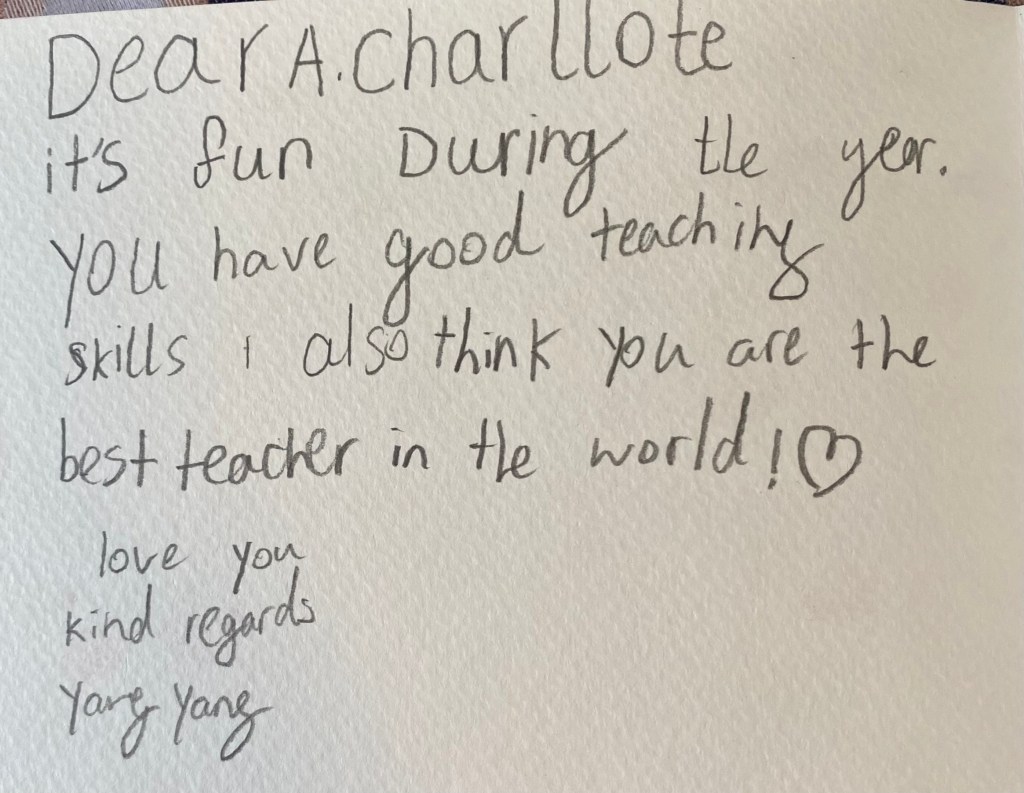 Dear A.charllote
it's fun During the year.
you have good teaching
skills i also think you are the
best teacher in the world!♡
love you
kind regards
Yang Yang